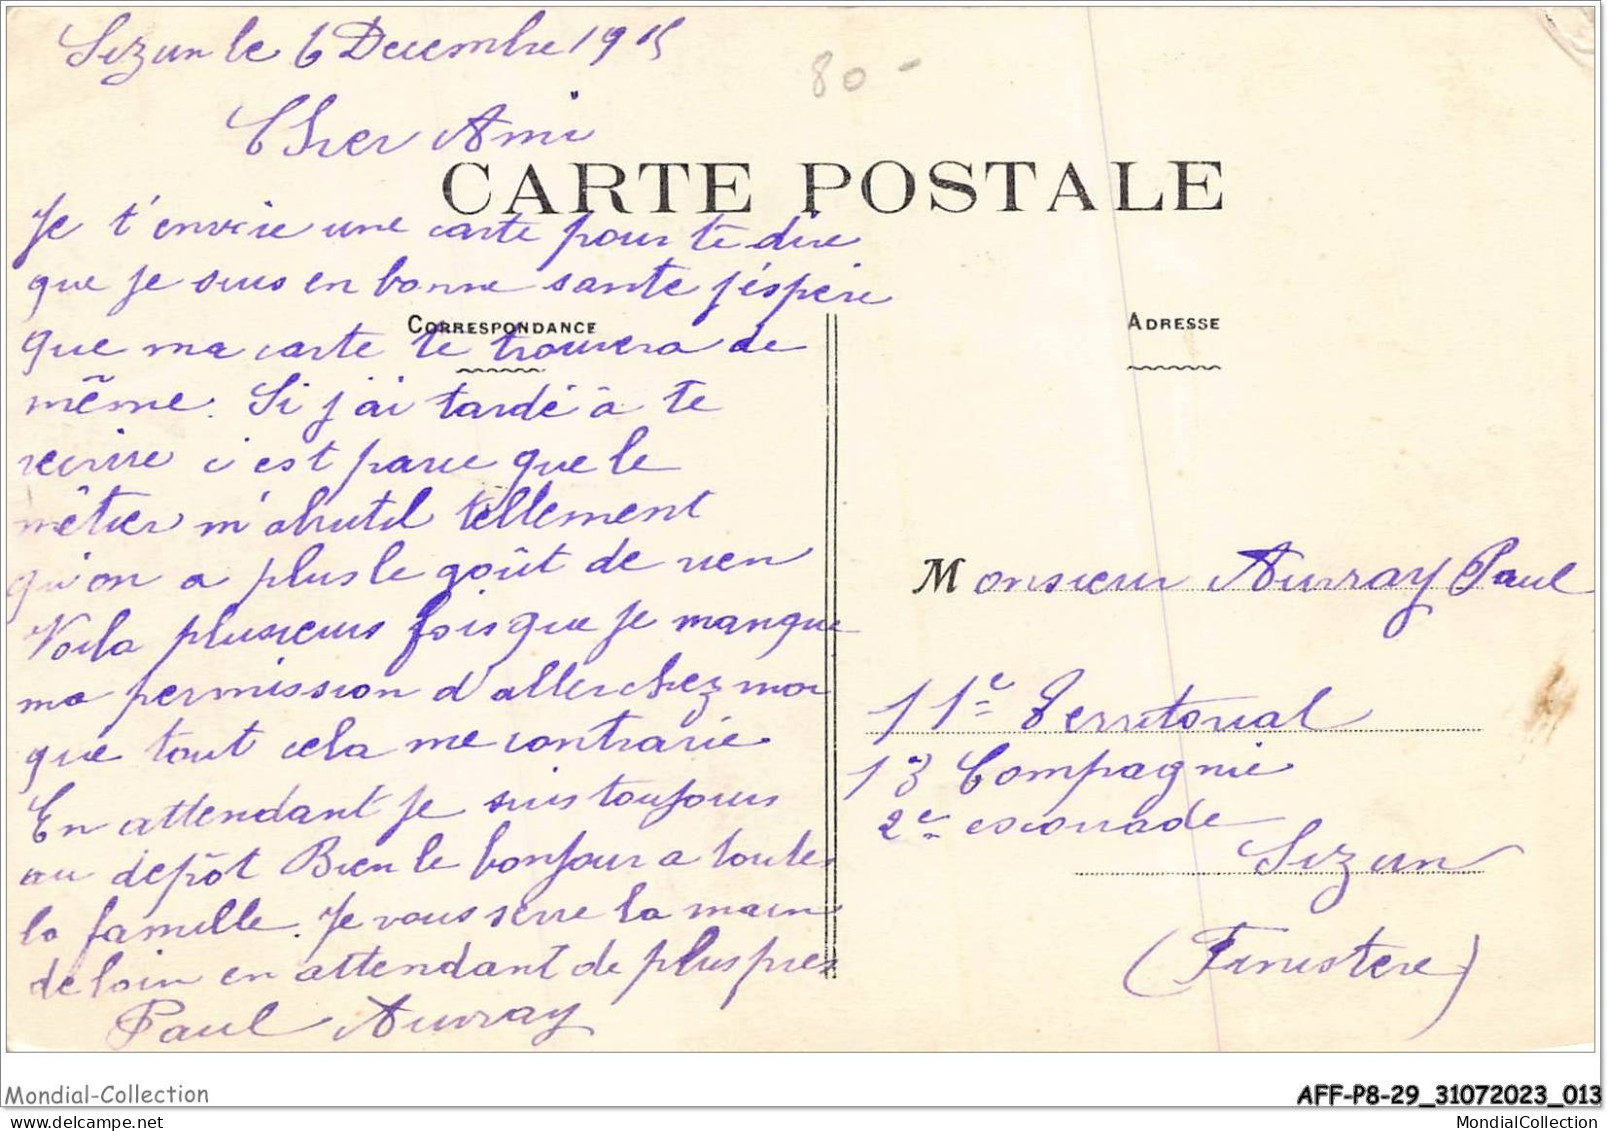 Sizun le 6 Decembre 1915
80 -
Cher Ami
CARTE POSTALE
Je t'envoie une carte pour te dire
que je suis en bonne sante j'éspère
CORRESPONDANCE
que ma carte te trouvera de
même. Si j'ai tardé à te
recrire c'est parce que le
mêtier m'abrutit tellement
qu'on a plus le goût de rien
Voila plusieurs fois que je manque
ma permission d'aller chez moi
que tout cela me contrarie
En attendant je suis toujours
au depôt Bien le bonjour a toute
la famille. Je vous serre la main
de loin en attendant de plus pres
Paul Auvray
ADRESSE
Monsieur Auvray Paul
11e Territorial
13 Compagnie
2e escouade
Sizun
(Finistere)
Mondial-Collection
AFF-P8-29_31072023_013
www.mondialcollection.com
MondialCollection